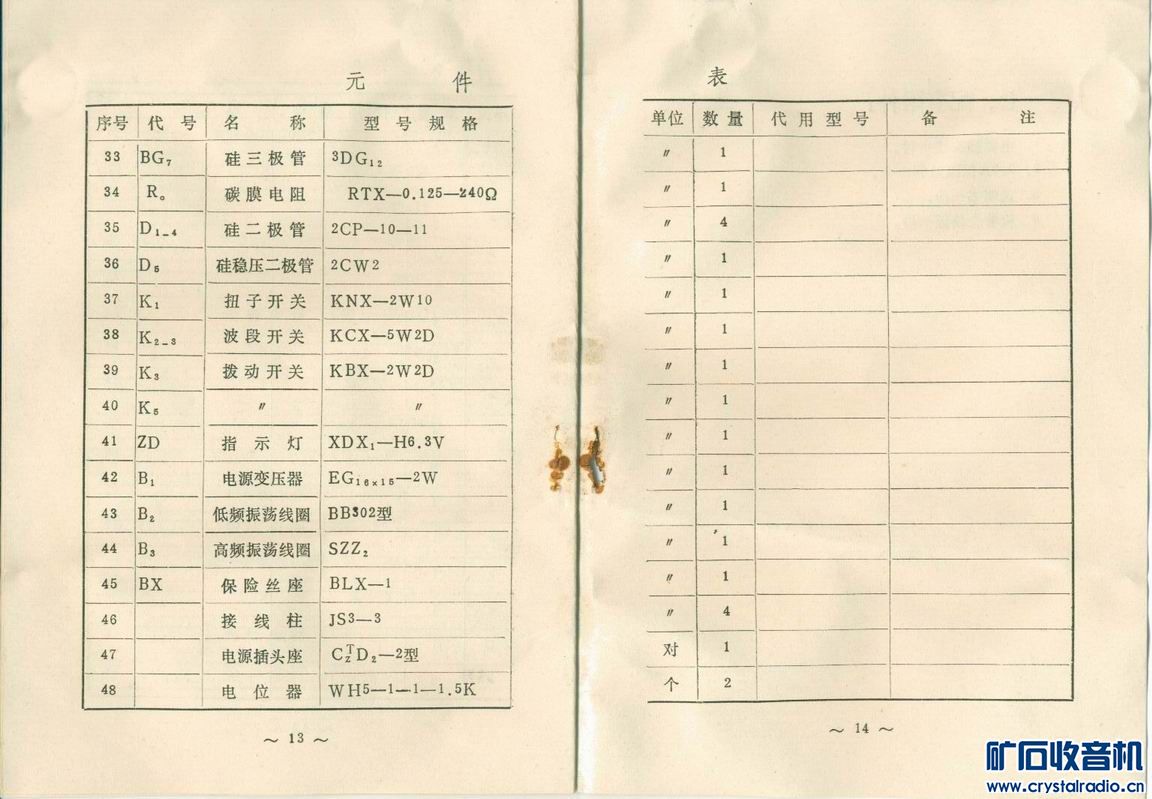 元 件
序号 代号 名称 型号规格
33 BG₇ 硅三极管 3DG₁₂
34 R。 碳膜电阻 RTX—0.125—240Ω
35 D₁₋₄ 硅二极管 2CP—10—11
36 D₅ 硅稳压二极管 2CW2
37 K₁ 扭子开关 KNX—2W10
38 K₂₋₃ 波段开关 KCX—5W2D
39 K₃ 拨动开关 KBX—2W2D
40 K₅ 〃 〃
41 ZD 指示灯 XDX₁—H6.3V
42 B₁ 电源变压器 EG₁₆ₓ₁₅—2W
43 B₂ 低频振荡线圈 BB302型
44 B₃ 高频振荡线圈 SZZ₂
45 BX 保险丝座 BLX—1
46 接线柱 JS3—3
47 电源插头座 CTZD₂—2型
48 电位器 WH5—1—1—1.5K
～ 13 ～
表
单位 数量 代用型号 备注
〃 1
〃 1
〃 4
〃 1
〃 1
〃 1
〃 1
〃 1
〃 1
〃 1
〃 1
〃 1
〃 1
〃 4
对 1
个 2
～ 14 ～
矿石收音机
www.crystalradio.cn